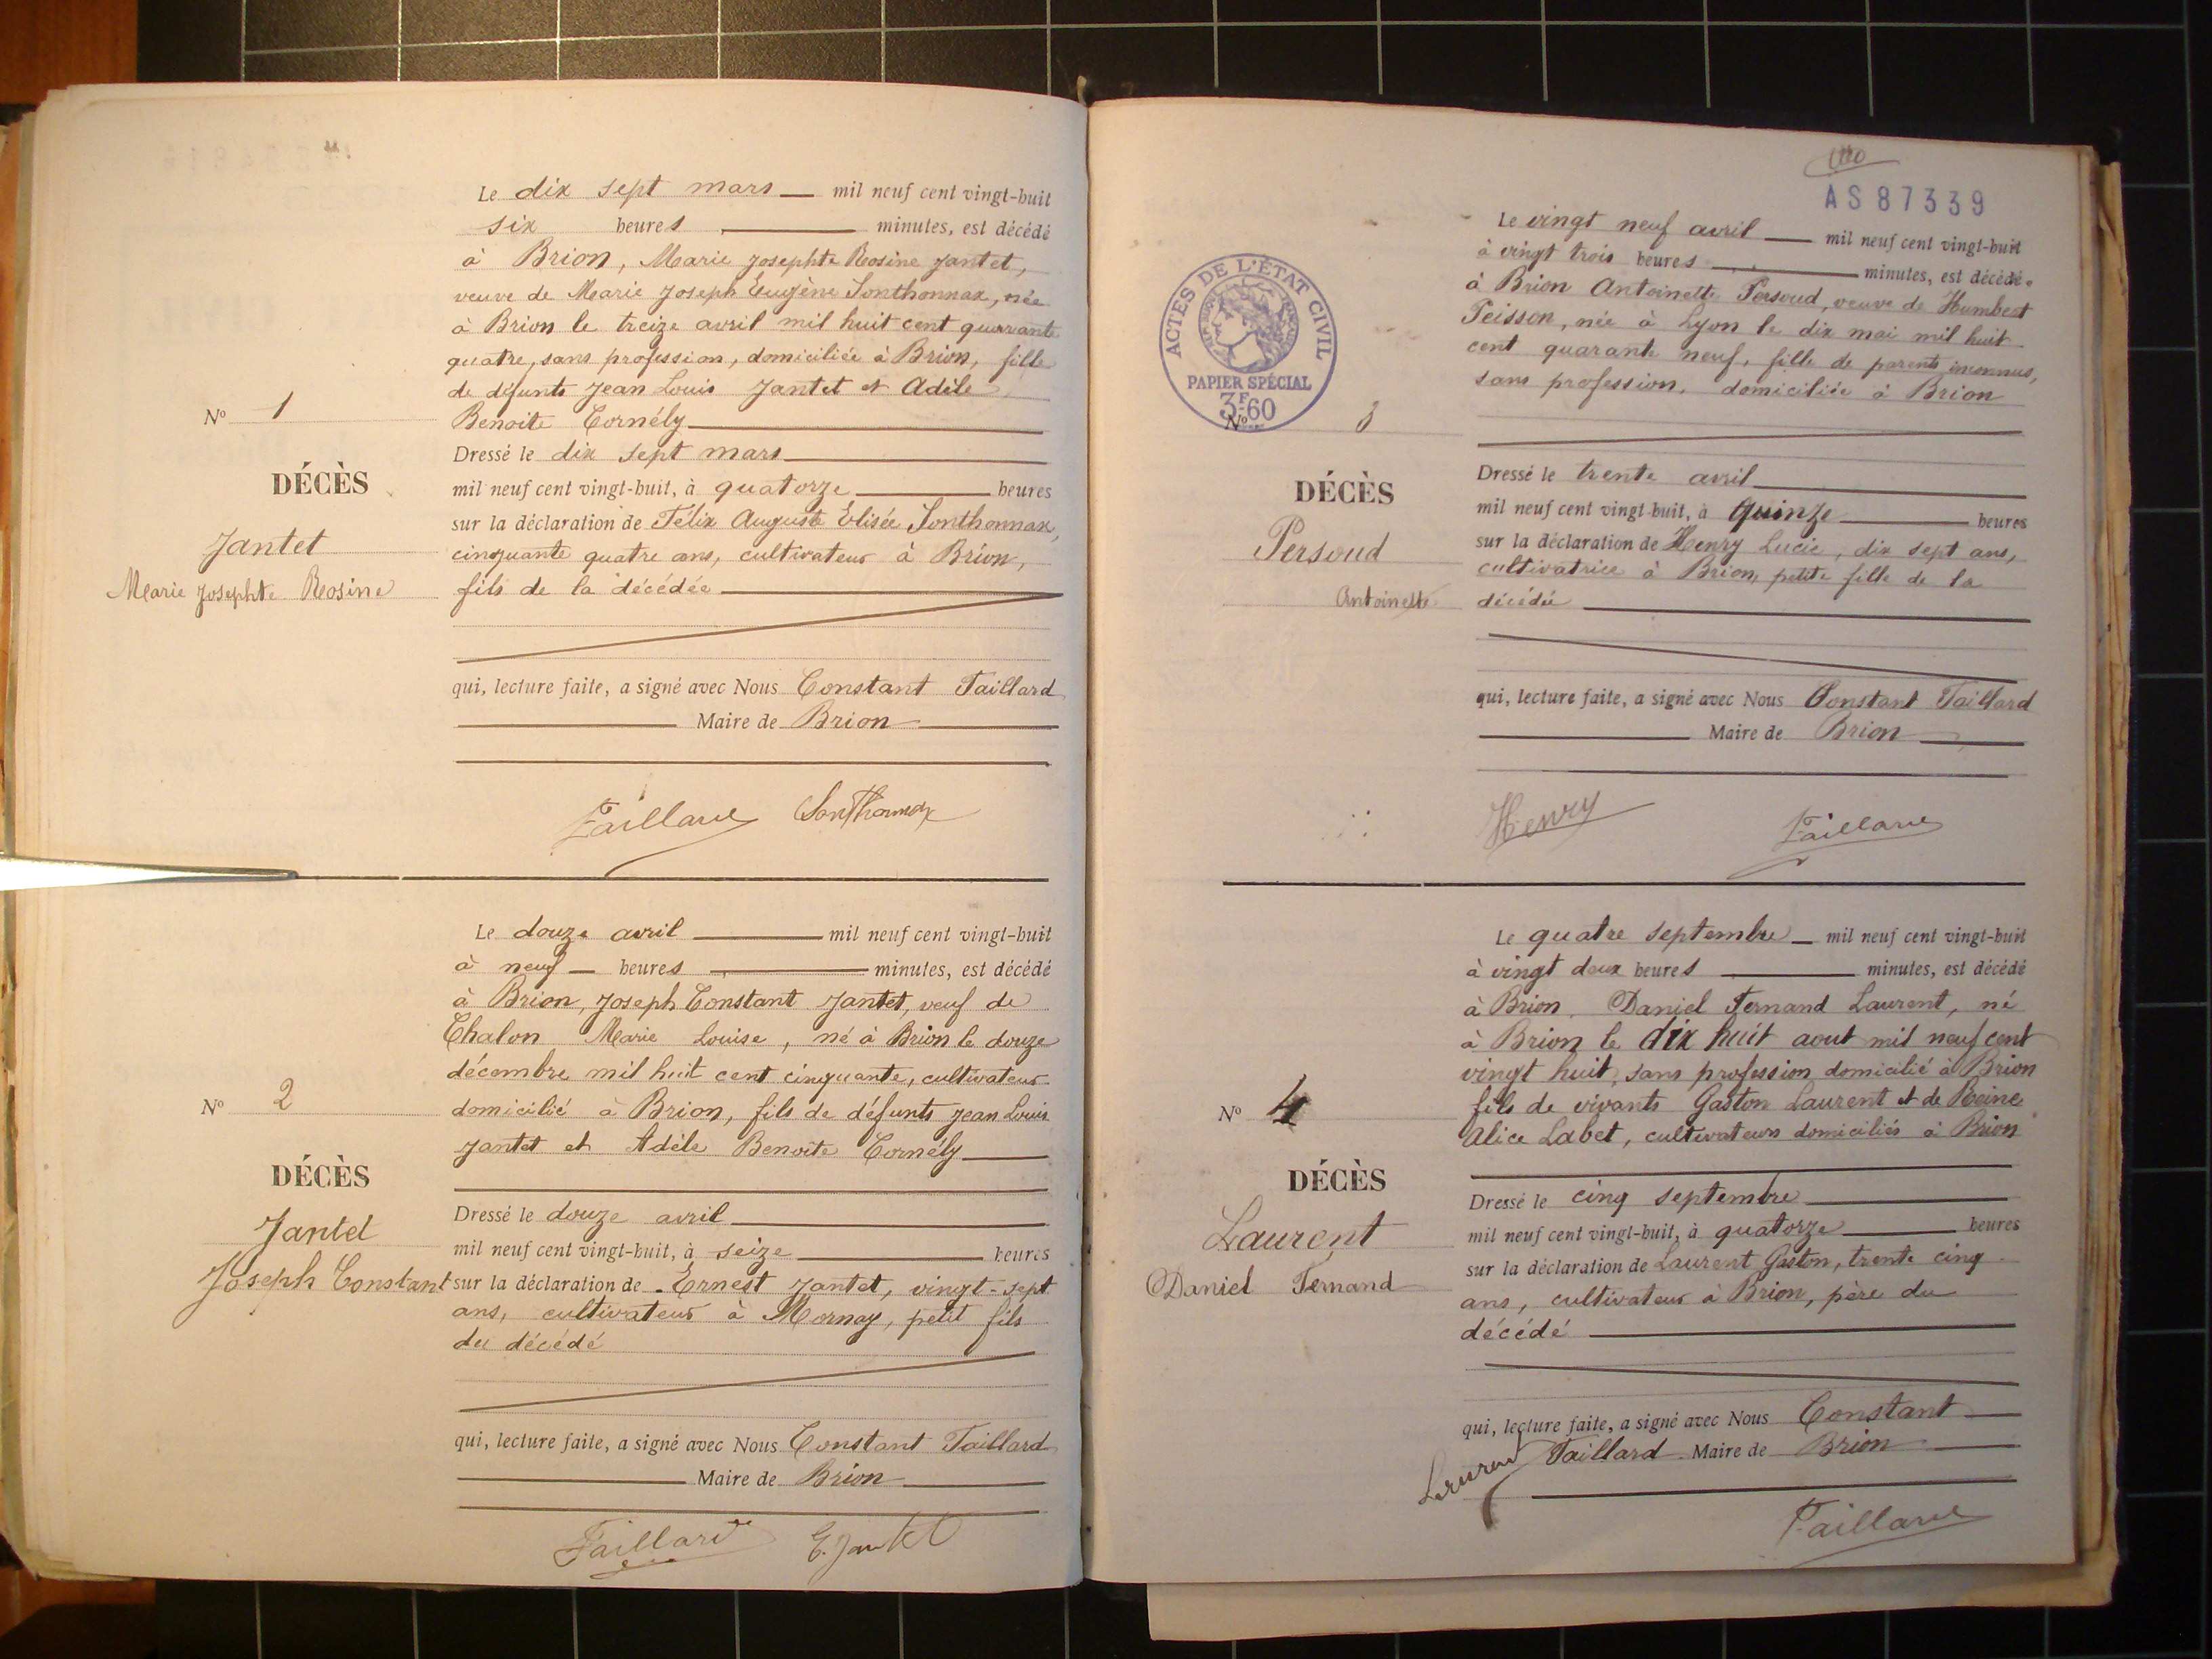 Le dix sept mars mil neuf cent vingt-huit
six heures minutes, est décédé
à Brion, Marie Josephte Rosine Jantet,
veuve de Marie Joseph Eugène Sonthonnax, née
à Brion le treize avril mil huit cent quarante
quatre, sans profession, domiciliée à Brion, fille
de défunts Jean Louis Jantet et Adèle
Benoite Cornély
N° 1
DÉCÈS
Jantet
Marie Josephte Rosine
Dressé le dix sept mars
mil neuf cent vingt-huit, à quatorze heures
sur la déclaration de Félix Auguste Elisée Sonthonnax,
cinquante quatre ans, cultivateur à Brion,
fils de la décédée
qui, lecture faite, a signé avec Nous Constant Taillard
Maire de Brion
Taillard Sonthonnax
Le douze avril mil neuf cent vingt-huit
à neuf heures minutes, est décédé
à Brion, Joseph Constant Jantet, veuf de
Chalon Marie Louise, né à Brion le douze
décembre mil huit cent cinquante, cultivateur
domicilié à Brion, fils de défunts Jean Louis
Jantet et Adèle Benoite Cornély
N° 2
DÉCÈS
Jantet
Joseph Constant
Dressé le douze avril
mil neuf cent vingt-huit, à seize heures
sur la déclaration de Ernest Jantet, vingt-sept
ans, cultivateur à Mornay, petit fils
du décédé
qui, lecture faite, a signé avec Nous Constant Taillard
Maire de Brion
Taillard E. Jantet
AS 87339
ACTES DE L'ÉTAT CIVIL
PAPIER SPÉCIAL
3F60
Le vingt neuf avril mil neuf cent vingt-huit
à vingt trois heures minutes, est décédée
à Brion Antoinette Persoud, veuve de Humbert
Teisson, née à Lyon le dix mai mil huit
cent quarante neuf, fille de parents inconnus,
sans profession, domiciliée à Brion
N° 3
DÉCÈS
Persoud
Antoinette
Dressé le trente avril
mil neuf cent vingt-huit, à quinze heures
sur la déclaration de Henry Lucie, dix sept ans,
cultivatrice à Brion, petite fille de la
décédée
qui, lecture faite, a signé avec Nous Constant Taillard
Maire de Brion
Henry Taillard
Le quatre septembre mil neuf cent vingt-huit
à vingt deux heures minutes, est décédé
à Brion, Daniel Fernand Laurent, né
à Brion le dix huit aout mil neuf cent
vingt huit, sans profession domicilié à Brion
fils de vivants Gaston Laurent et de Reine
Alice Labet, cultivateurs domiciliés à Brion
N° 4
DÉCÈS
Laurent
Daniel Fernand
Dressé le cinq septembre
mil neuf cent vingt-huit, à quatorze heures
sur la déclaration de Laurent Gaston, trente cinq
ans, cultivateur à Brion, père du
décédé
qui, lecture faite, a signé avec Nous Constant
Taillard Maire de Brion
Laurent
Taillard